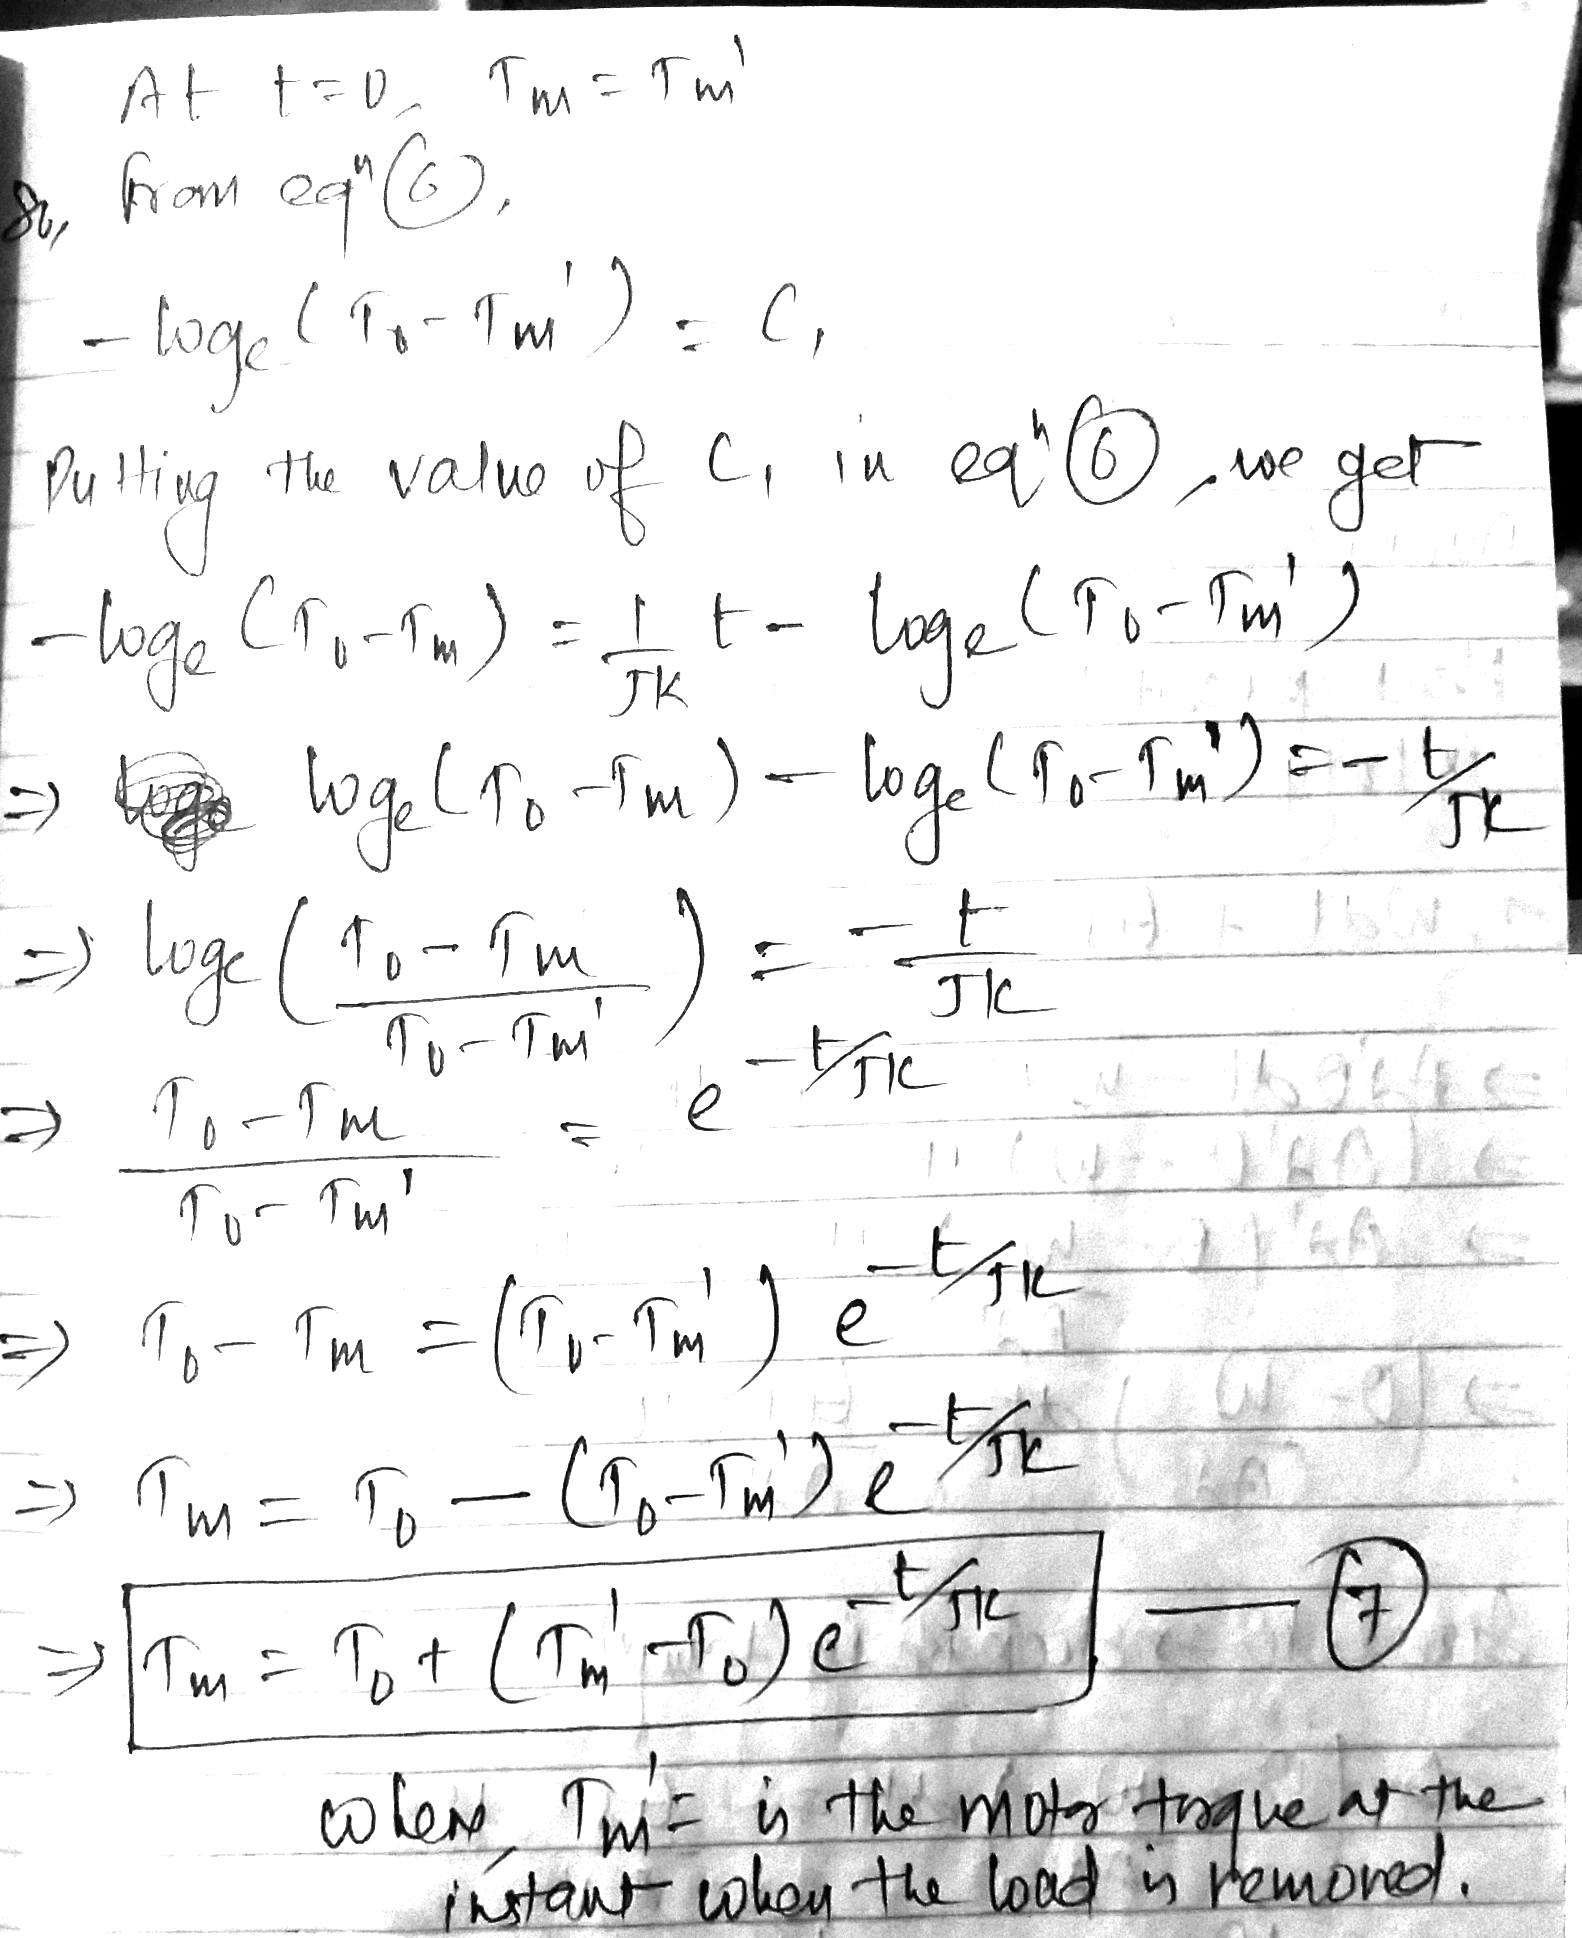 At t=0, Tm = Tm'
So, from eqⁿ (6),
- logₑ (T₀ - Tm') = C₁
Putting the value of C₁ in eqⁿ (6), we get
- logₑ (T₀ - Tm) = 1/JK t - logₑ (T₀ - Tm')
=> logₑ (T₀ - Tm) - logₑ (T₀ - Tm') = - t/JK
=> logₑ ( (T₀ - Tm) / (T₀ - Tm') ) = - t/JK
=> (T₀ - Tm) / (T₀ - Tm') = e^(-t/JK)
=> T₀ - Tm = (T₀ - Tm') e^(-t/JK)
=> Tm = T₀ - (T₀ - Tm') e^(-t/JK)
=> Tm = T₀ + (Tm' - T₀) e^(-t/JK) — (7)
where, Tm' = is the motor torque at the
instant when the load is removed.